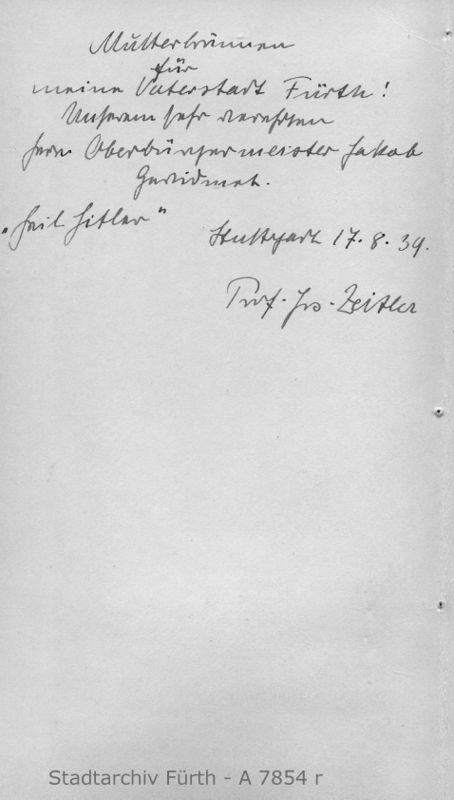 Mutterbrunnen
für
meine Vaterstadt Fürth!
Unserem sehr verehrten
Herrn Oberbürgermeister Jakob
Gewidmet.
„Heil Hitler"
Stuttgart 17.8.39.
Prof. Jos. Zeitler
Stadtarchiv Fürth - A 7854 r